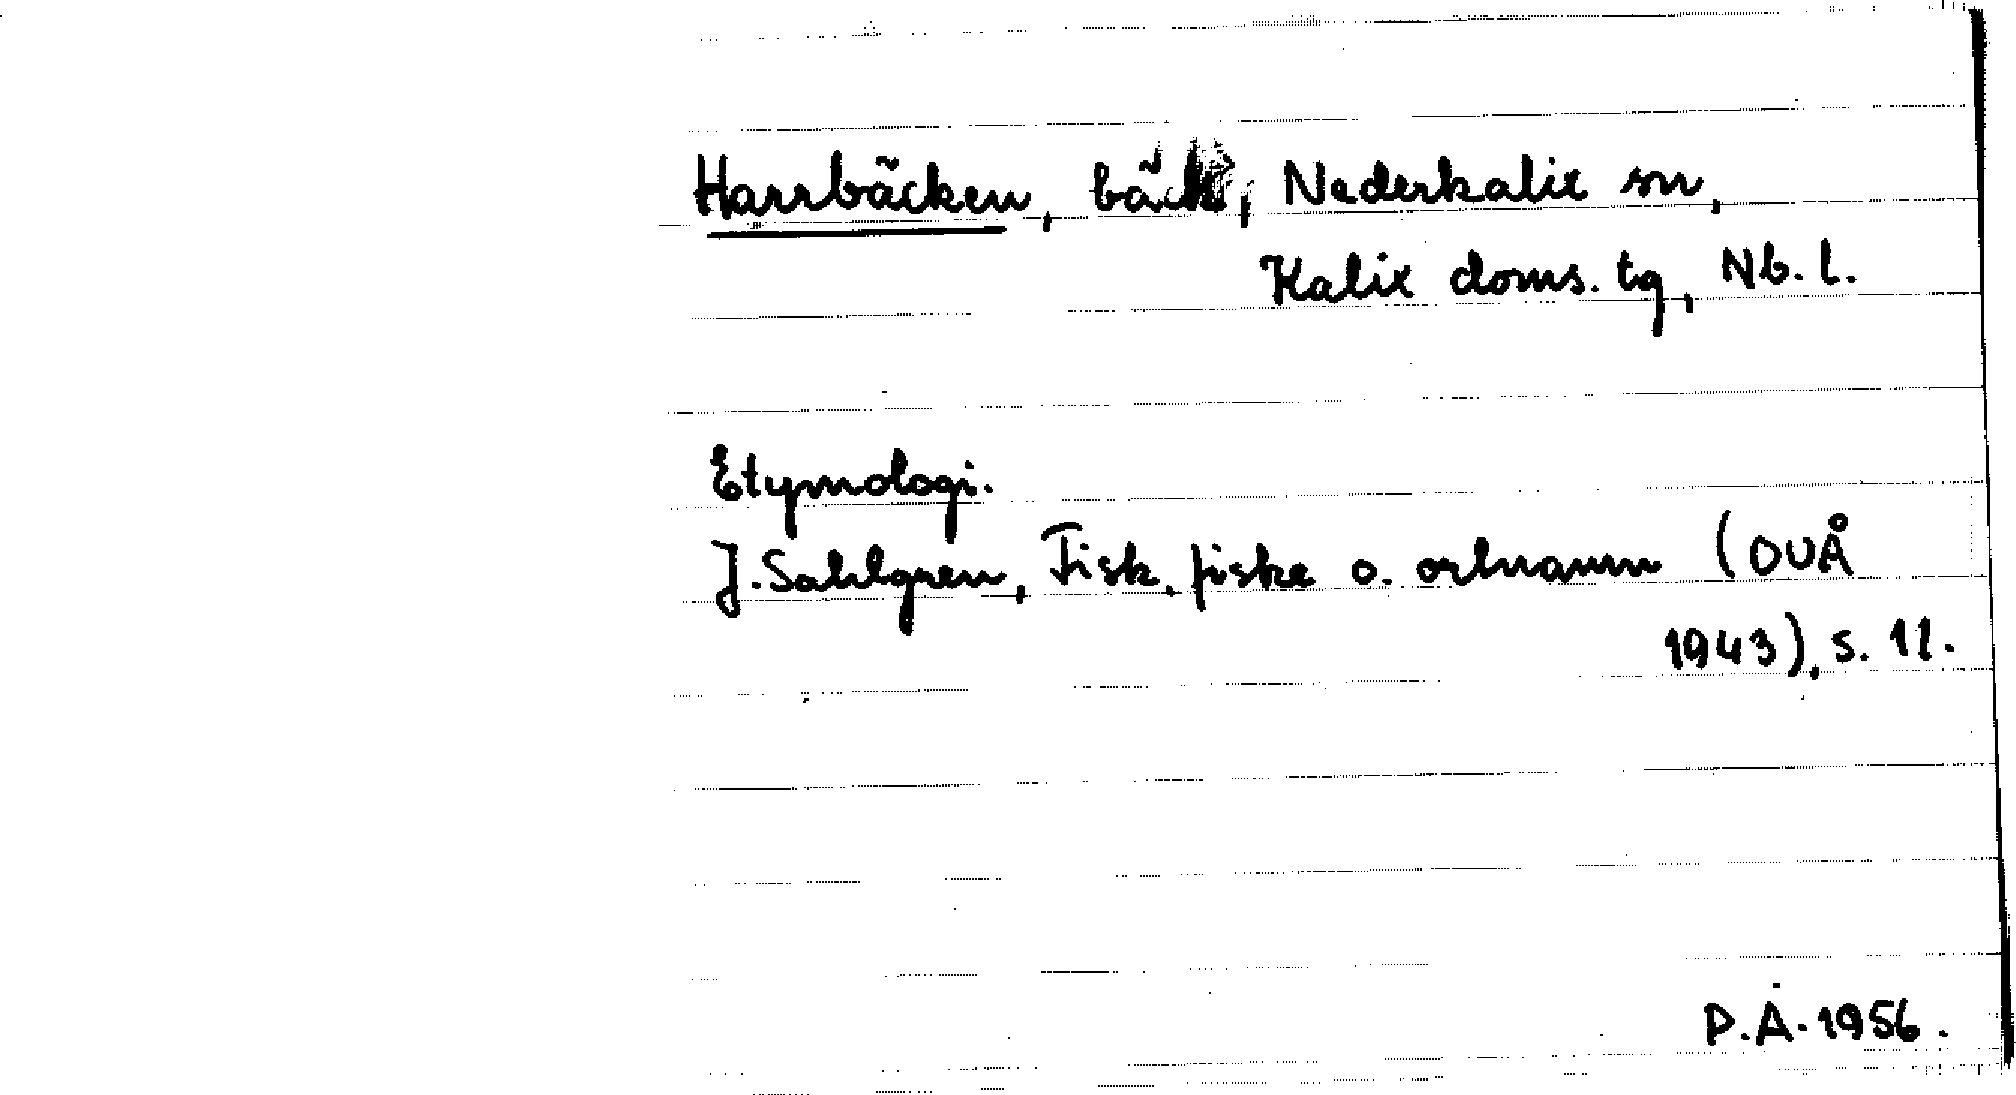 Harrbäcken, bäck, Nederkalix sn,
Kalix doms. tg, Nb. l.
Etymologi.
J. Sahlgren, Fisk, fiske o. ortnamn (OUÅ
1943), s. 11.
P.Å. 1956.